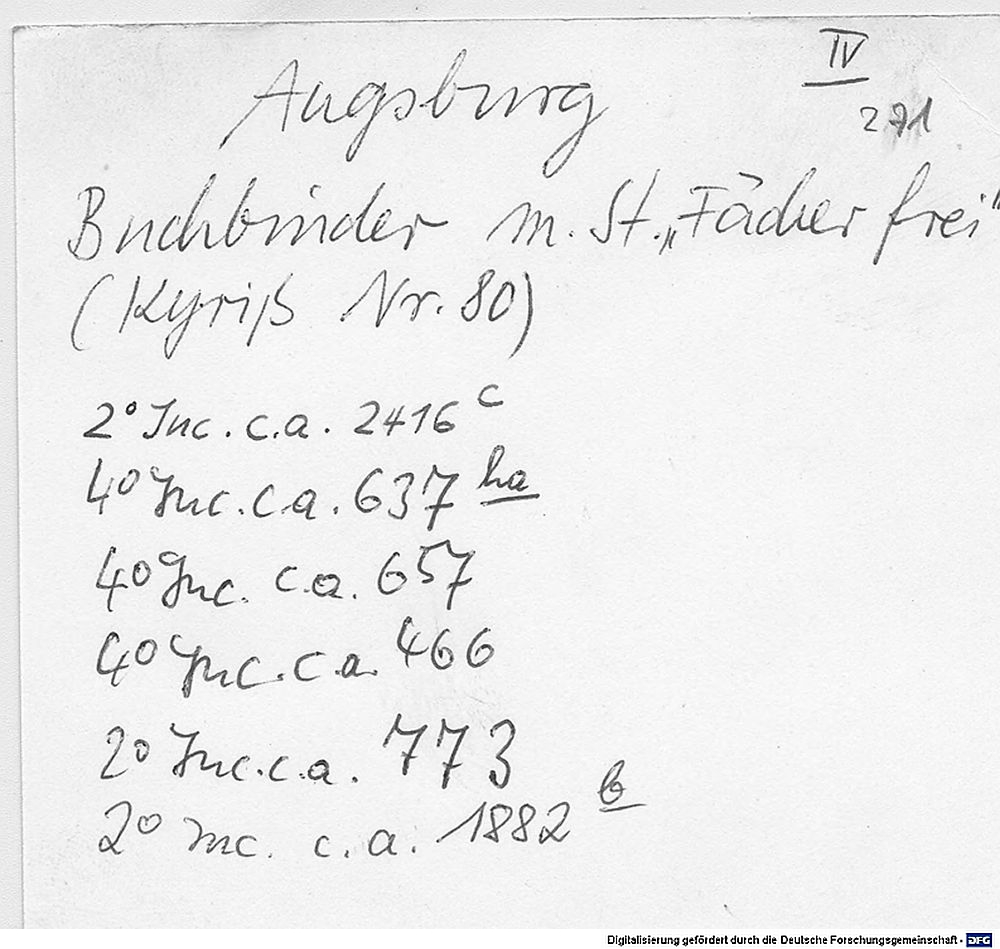 IV
Augsburg
271
Buchbinder m. St. „Fächer frei“
(Kyriß Nr. 80)
2° Inc. c.a. 2416 c
4° Inc. c.a. 637 ha
4° Inc. c.a. 657
4° Inc. c.a. 466
2° Inc. c.a. 773
2° Inc. c.a. 1882 b
Digitalisierung gefördert durch die Deutsche Forschungsgemeinschaft - DFG